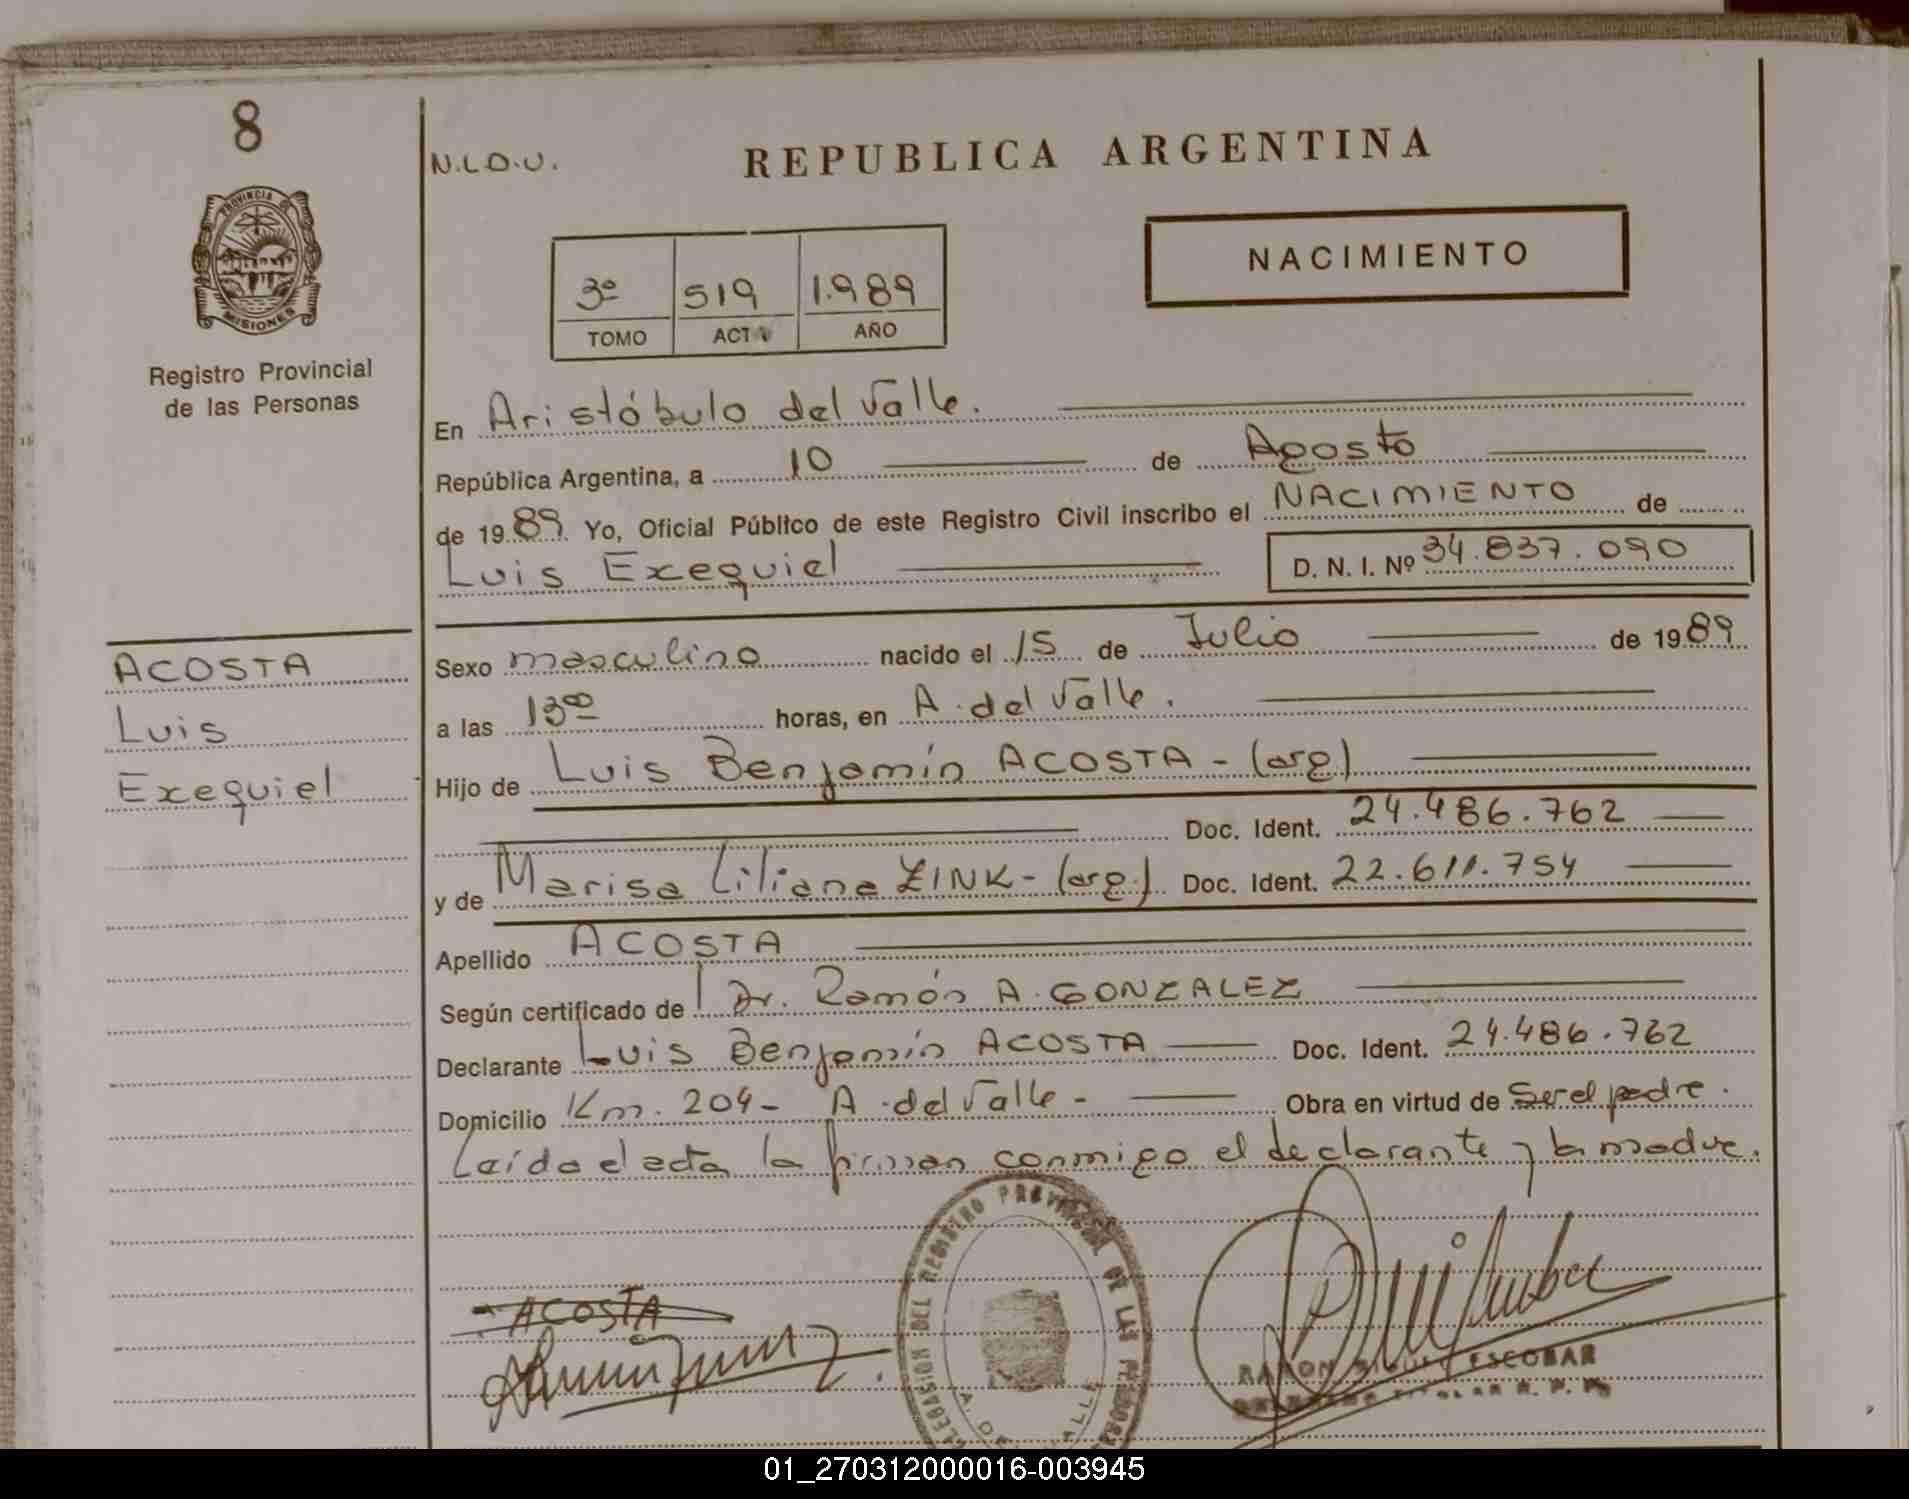 8
PROVINCIA DE
MISIONES
Registro Provincial
de las Personas
ACOSTA
Luis
Exequiel
N.L.O.U.
REPUBLICA ARGENTINA
NACIMIENTO
3º 519 1.989
TOMO ACTA AÑO
En Aristóbulo del Valle.
República Argentina, a 10 de Agosto
de 1989 Yo, Oficial Público de este Registro Civil inscribo el NACIMIENTO de
Luis Exequiel D. N. I. Nº 34.837.090
Sexo masculino nacido el 15 de Julio de 1989
a las 13⁰⁰ horas, en A. del Valle.
Hijo de Luis Benjamín ACOSTA - (arg)
Doc. Ident. 24.486.762
y de Marisa Liliana ZINK - (arg.) Doc. Ident. 22.611.754
Apellido ACOSTA
Según certificado de Dr. Ramón A. GONZALEZ
Declarante Luis Benjamín ACOSTA Doc. Ident. 24.486.762
Domicilio Km. 204 - A. del Valle - Obra en virtud de Ser el padre.
Leída el acta la firman conmigo el declarante y la madre.
DELEGACION DEL REGISTRO PROVINCIAL DE LAS PERSONAS
A. DEL VALLE
ACOSTA
RAMON MIGUEL ESCOBAR
TITULAR R. P. P.
01_270312000016-003945